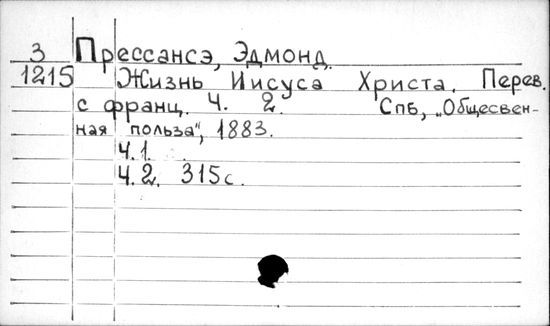 З Прессансэ, Эдмонд.
1215 Жизнь Иисуса Христа. Перев.
с франц. Ч. 2. Спб, „Общесвен-
ная польза", 1883.
Ч.1.
Ч.2. 315с.